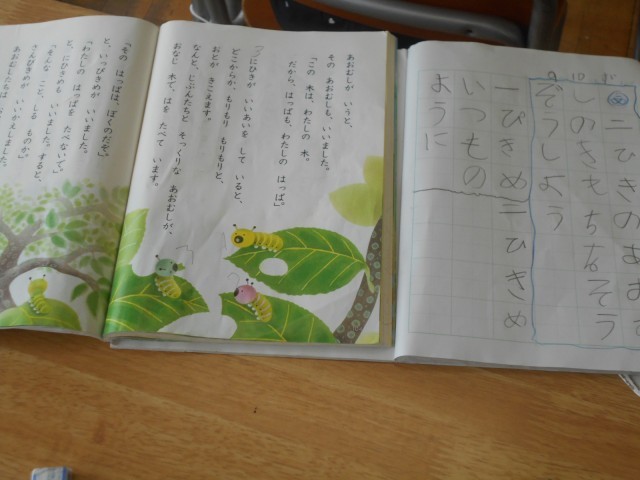 あおむしが いうと、
その あおむしも、いいました。
「この 木は、わたしの 木。
だから、はっぱも、わたしの はっぱ。」
にひきが いいあいを して いると、
どこからか、もりもり もりもりと、
おとが きこえます。
なんと、じぶんたちと そっくりな あおむしが、
おなじ 木で、はを たべて います。
「その はっぱは、ぼくのだぞ。」
と、いっぴきめが いいました。
「わたしの はっぱを たべないで。」
と、にひきめも いいました。すると、
「そんな こと、しる ものか。」
さんびきめが いいかえしました。
あおむしたちは
9 10 31
ニひきのあおむ
しのきもちをそう
ぞうしよう
一ぴきめニひきめ
いつもの
ように